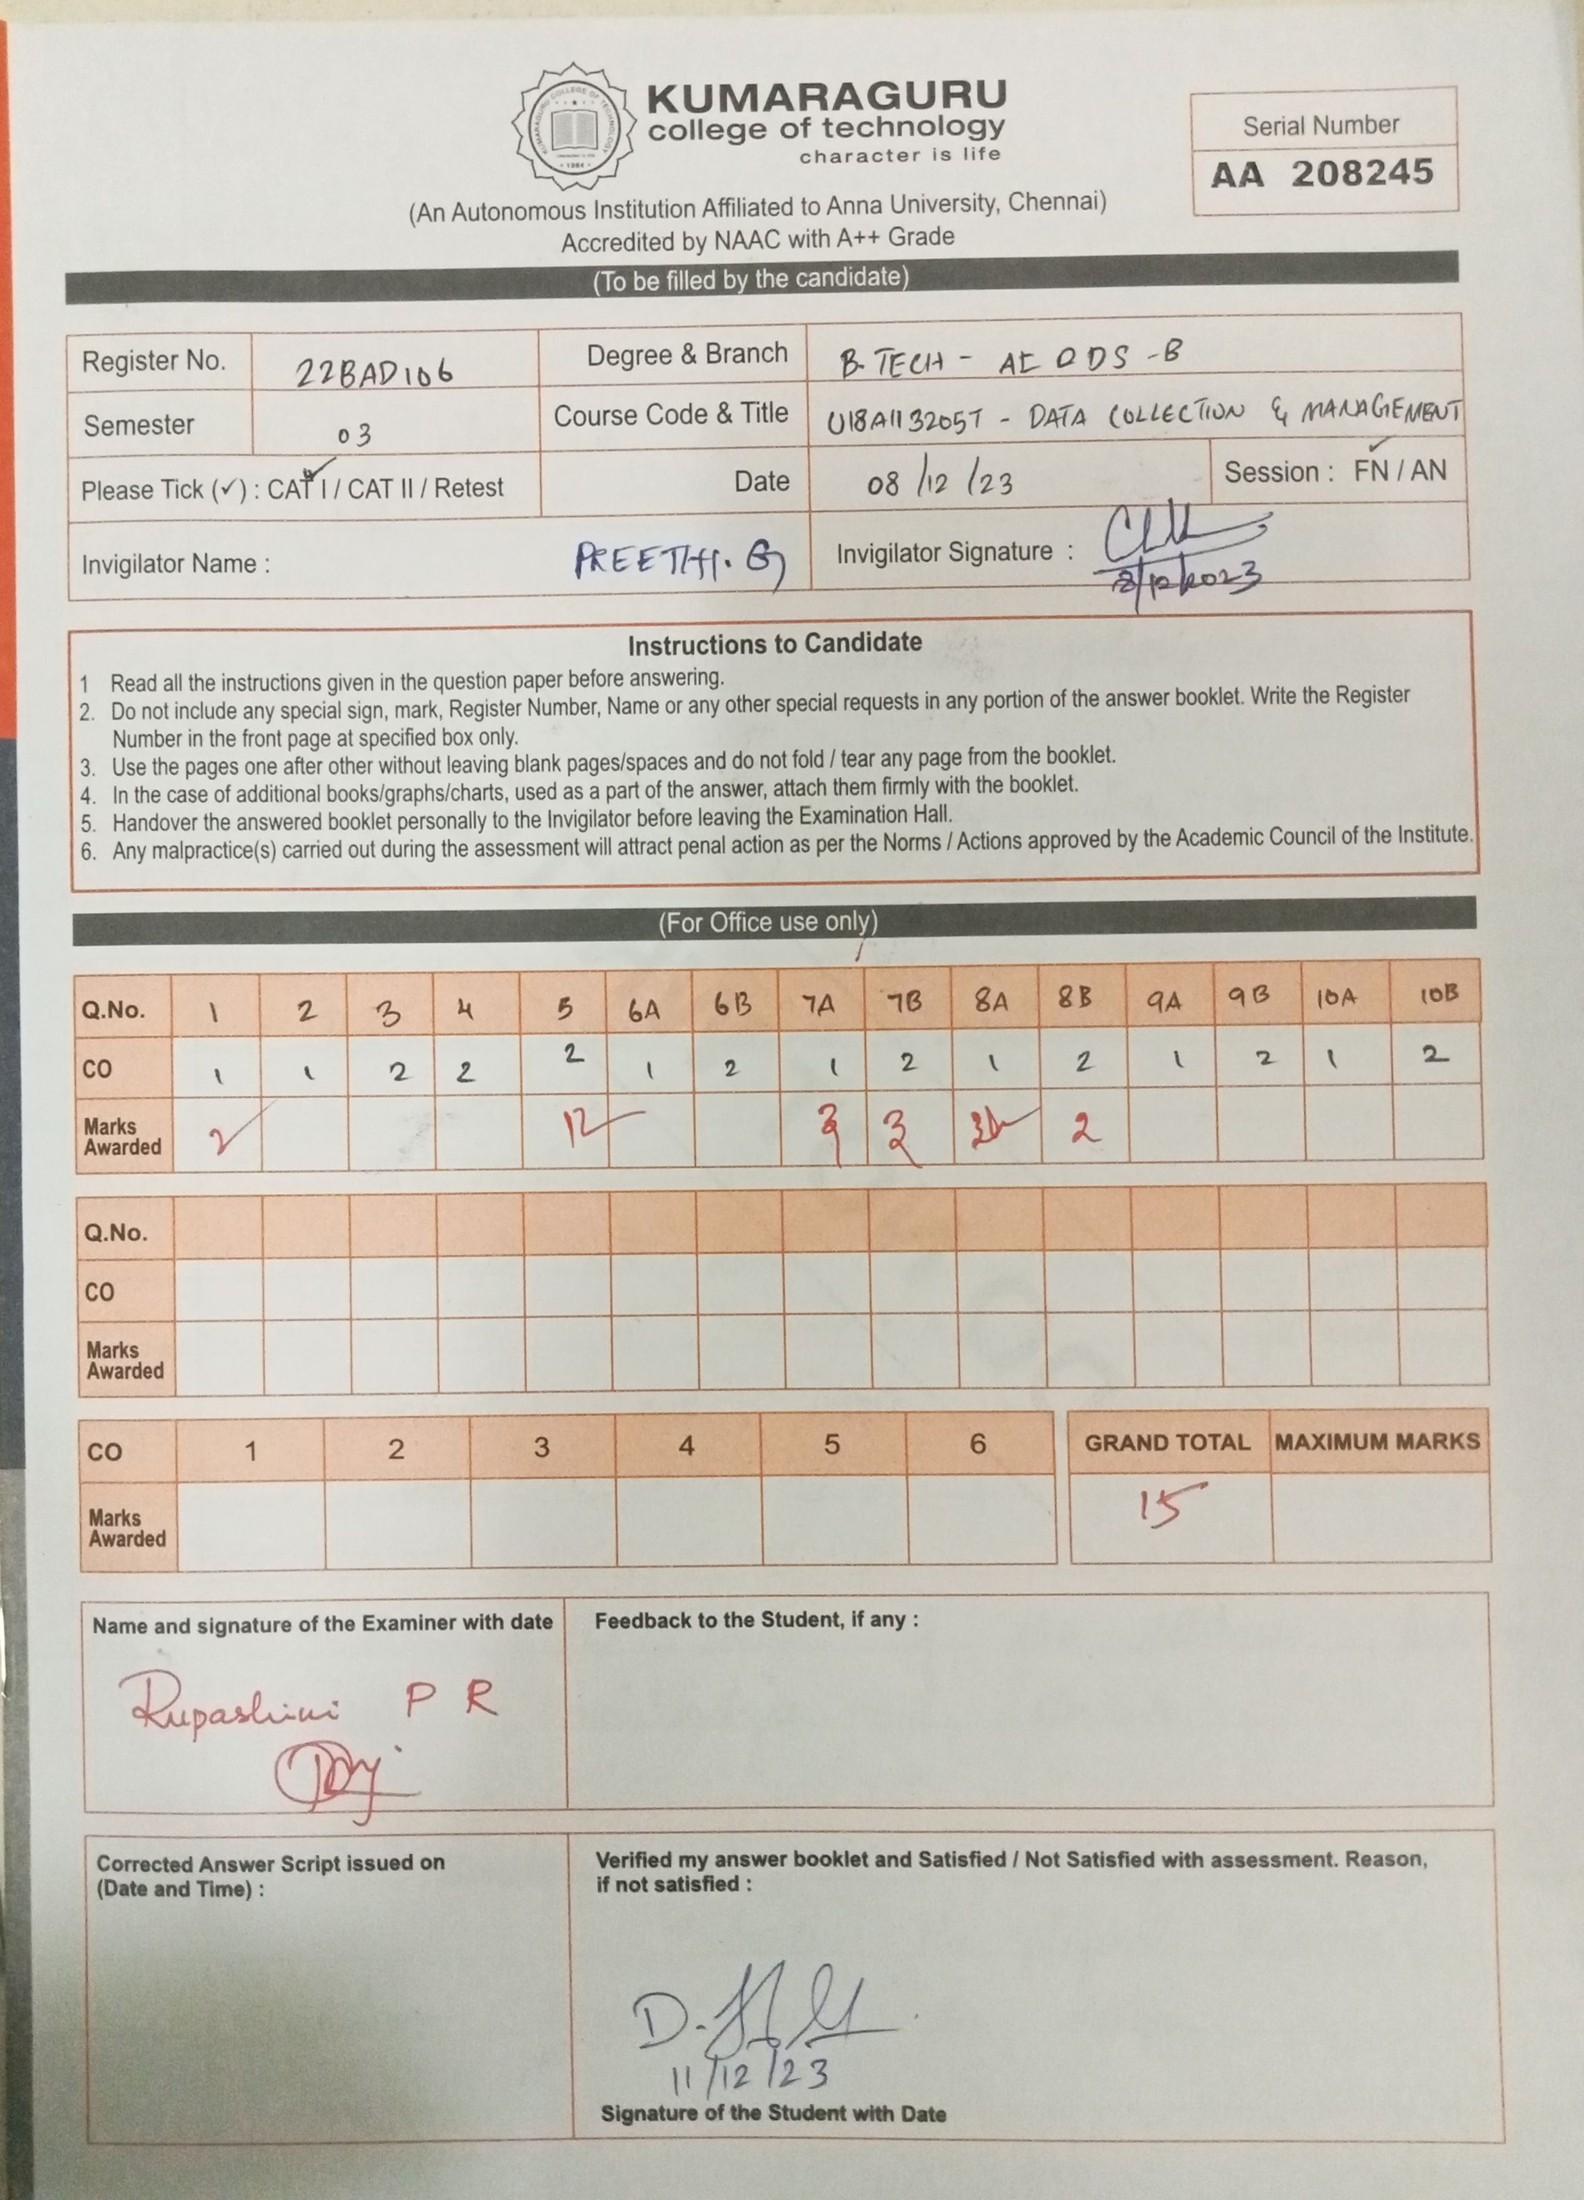 KUMARAGURU
college of technology
character is life
(An Autonomous Institution Affiliated to Anna University, Chennai)
Accredited by NAAC with A++ Grade
Serial Number
AA 208245
(To be filled by the candidate)
Register No. 22BAD106 Degree & Branch B.TECH - AI & DS - B
Semester 03 Course Code & Title U18AII3205T - DATA COLLECTION & MANAGEMENT
Please Tick (✓) : CAT I / CAT II / Retest Date 08/12/23 Session : FN / AN
Invigilator Name : PREETHI. G Invigilator Signature :
8/12/2023
Instructions to Candidate
1 Read all the instructions given in the question paper before answering.
2. Do not include any special sign, mark, Register Number, Name or any other special requests in any portion of the answer booklet. Write the Register
Number in the front page at specified box only.
3. Use the pages one after other without leaving blank pages/spaces and do not fold / tear any page from the booklet.
4. In the case of additional books/graphs/charts, used as a part of the answer, attach them firmly with the booklet.
5. Handover the answered booklet personally to the Invigilator before leaving the Examination Hall.
6. Any malpractice(s) carried out during the assessment will attract penal action as per the Norms / Actions approved by the Academic Council of the Institute.
(For Office use only)
Q.No. 1 2 3 4 5 6A 6B 7A 7B 8A 8B 9A 9B 10A 10B
CO 1 1 2 2 2 1 2 1 2 1 2 1 2 1 2
Marks
Awarded 2 3 3 2
Q.No.
CO
Marks
Awarded
CO 1 2 3 4 5 6 GRAND TOTAL MAXIMUM MARKS
Marks
Awarded 15
Name and signature of the Examiner with date
Rupashini P R
Feedback to the Student, if any :
Corrected Answer Script issued on
(Date and Time) :
Verified my answer booklet and Satisfied / Not Satisfied with assessment. Reason,
if not satisfied :
11/12/23
Signature of the Student with Date